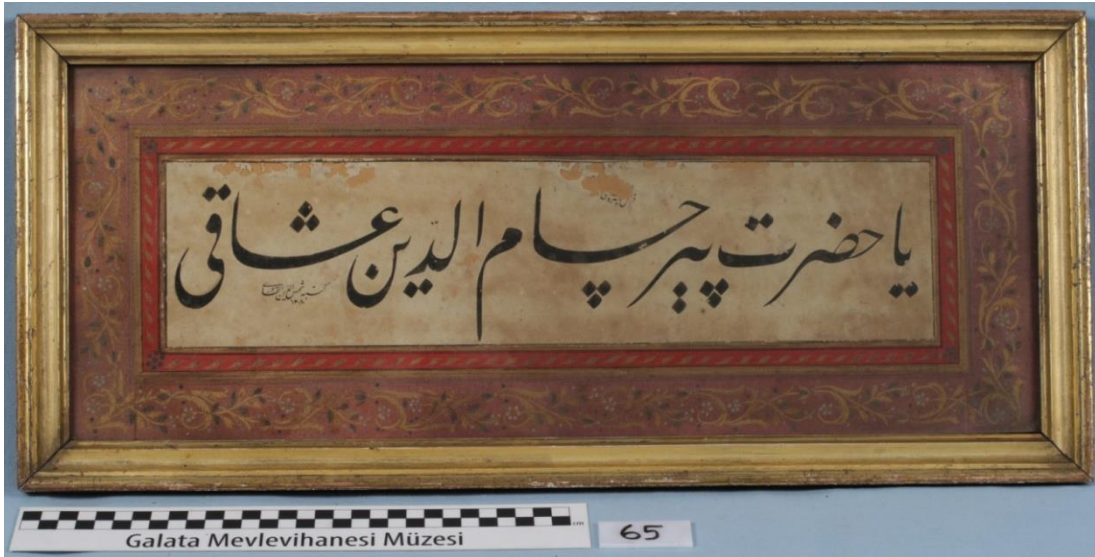 يا حضرت پير حسام الدّين عشاقى
Galata Mevlevihanesi Müzesi
cm
65